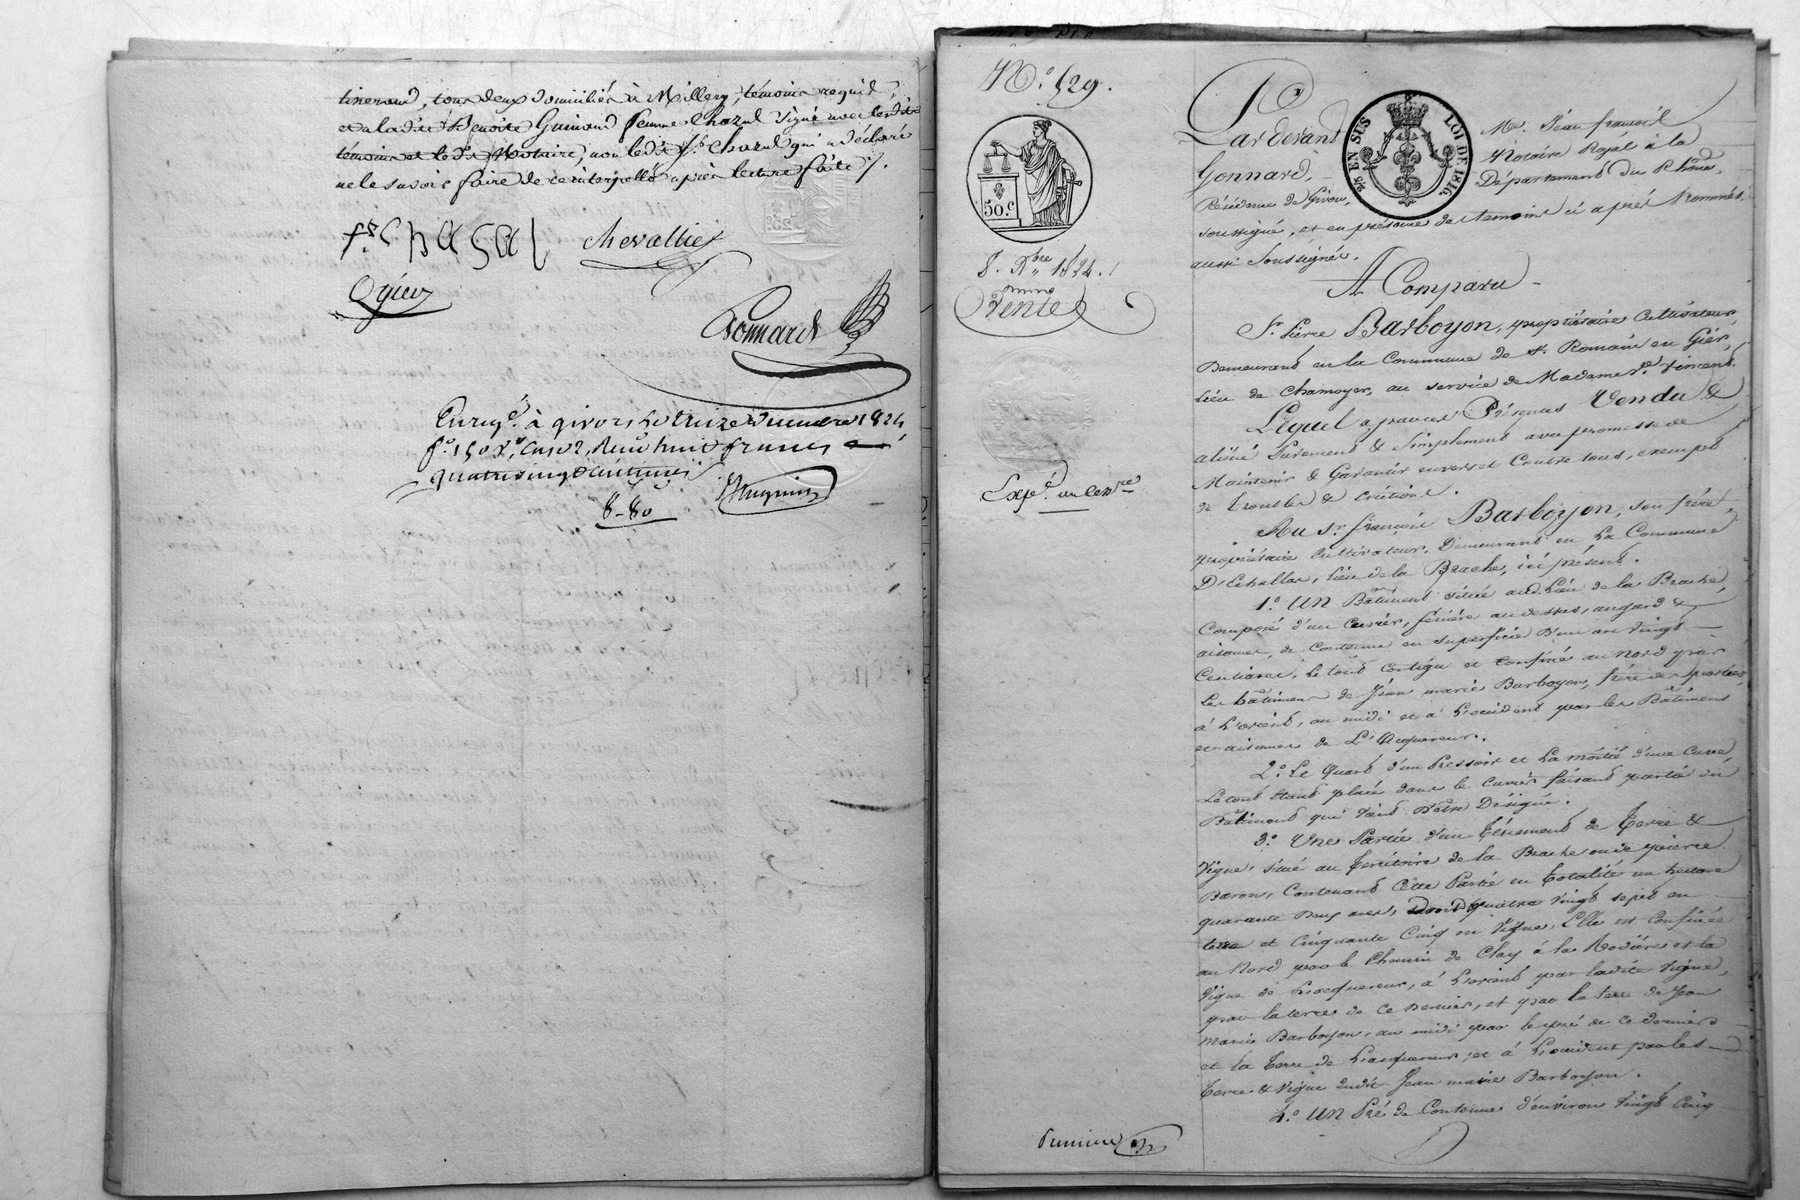 tinerand, tous deux domiciliés à Millery, témoins requis
et a la dte Benoite Guinand femme Chazal signé avec lesdits
témoins et le dt Notaire, non ledit Sr. Chazal qui a déclaré
ne le savoir faire de ce interpellé après lecture faite /.
chevallier
Ogier
Gonnard
Enregé. à givors le treize décembre 1824
fo. 150 Ro. Case 2, Reçu huit francs
quatre vingt centimes
8-80
No. 529.
50.c
8. Xbre 1824.
Vente
Expé. en Cence
Pardevant
25c EN SUS LOI DE 1816.
Me. Jean françois
Gonnard,
Notaire Royal à la
Résidence de Givors,
Département du Rhône,
soussigné, et en présence des témoins ci après Nommés,
aussi Soussignés.
A Comparu
Sr. Pierre Barboyon, propriétaire Cultivateur,
Demeurant en la Commune de St. Romain en Gier,
Lieu de Chamoyer, au service de Madame Ve. Vincent.
Lequel a, par ces Présentes Vendu &
aliéné Purement & Simplement avec promesse de
Maintenir & Garantir envers et Contre tous, exempt
de trouble & Eviction.
Au Sr. françois Barboyon, son frère,
propriétaire Cultivateur, Demeurant en la Commune
D'Echallas, Lieu de la Brache, ici présent.
1o. UN Bâtiment situé audt. Lieu de la Brache,
Composé d'un Cuvier, fenière au dessus, angard &
aisances, de contenue en superficie d'un are Vingt
Centiares; Le tout contigu et confiné au Nord par
Les bâtimens de Jean marie Barboyon, frère des parties,
à L'orient, au midi et à L'occident par les Bâtimens
et aisances de L'Acquéreur.
2o. Le Quart d'un Pressoir et La moitié d'une Cuve
Le tout étant placé dans le Cuvier faisant partie du
Bâtiment qui Vient D'être Désigné.
3o. Une Partie d'un Ténement de Terre &
Vigne, situé au Territoire de la Brache ou de pierre
Baron, Contenant Cette Partie en totalité un hectare
quarante Deux ares, dont quatre Vingt sept en
terre et Cinquante Cinq en Vigne. Elle est Confinée
au Nord par le Chemin de Clay à la Rodière et la
Vigne de L'acquéreur, à L'orient par ladite Vigne,
par la terre de Ce Dernier, et par la terre de Jean
Marie Barboyon, au midi par le pré de ce dernier
et la Terre de L'acquéreur, et à L'occident par les
Terre & Vigne dudit Jean marie Barboyon.
4o. UN Pré de Contenue d'environ Vingt Cinq
Première